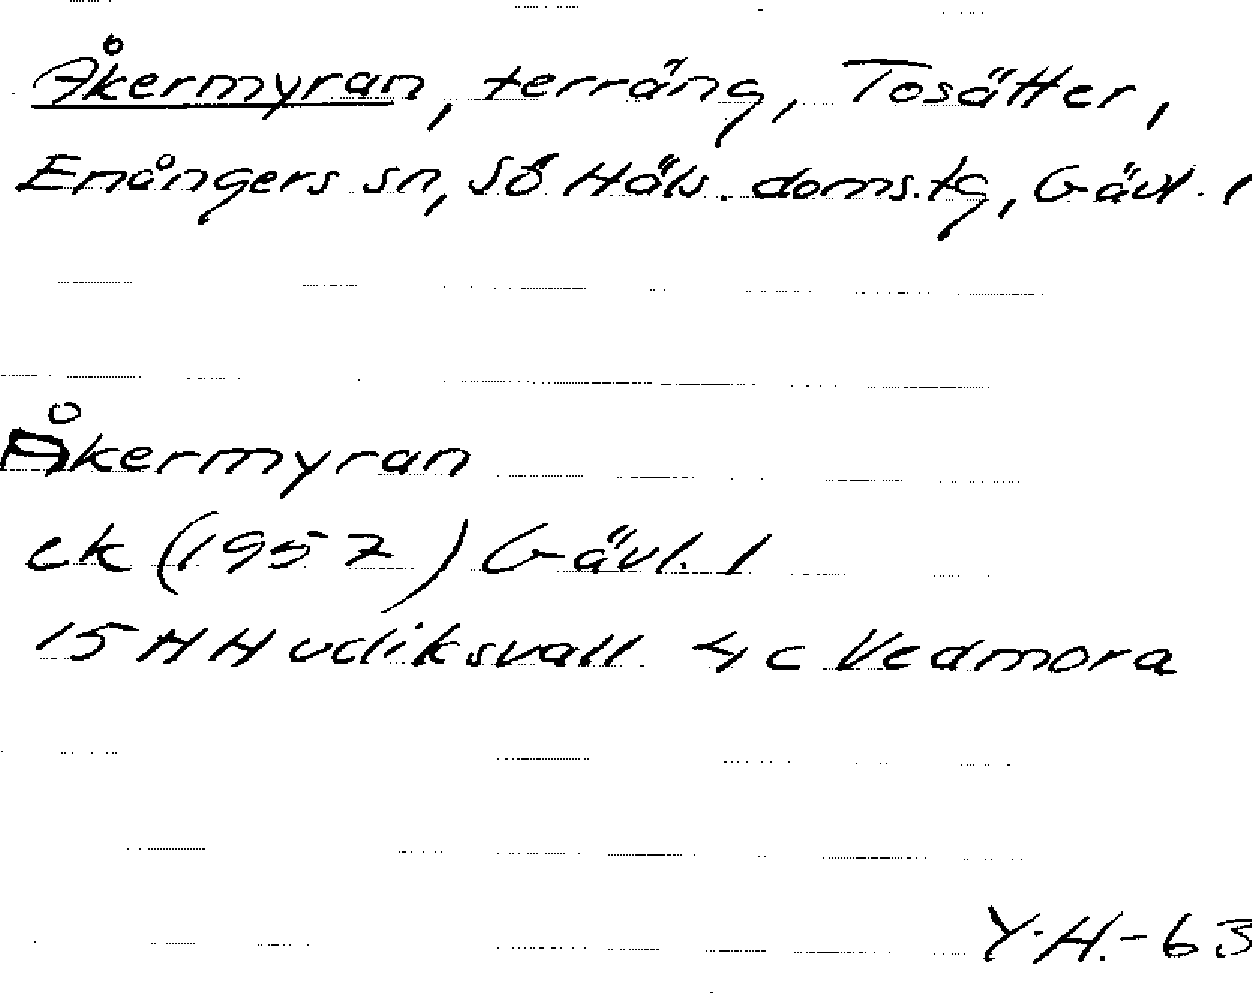 Åkermyran, terräng, Tosätter,
Enångers sn, SÖ Häls. doms.tg, Gävl. l
Åkermyran
ek (1957) Gävl. l
15 H Hudiksvall 4 c Vedmora
Y.H.-63